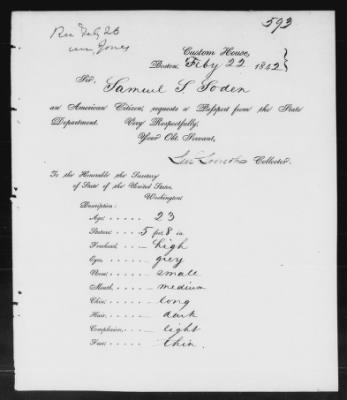 593
Rec Feby 26
Custom House,
Boston, Feby 22 1842
Sir,
Samuel S. Soden
an American Citizen, requests a Passport from the State
Department. Very Respectfully,
Your Obt. Servant,
Collector.
To the Honorable the Secretary
of State of the United States,
Washington
Description:
Age ..... 23
Stature .... 5 feet 8 in
Forehead .... high
Eyes ..... grey
Nose ..... small
Mouth .... medium
Chin ..... long
Hair ..... dark
Complexion .... light
Face ..... thin.